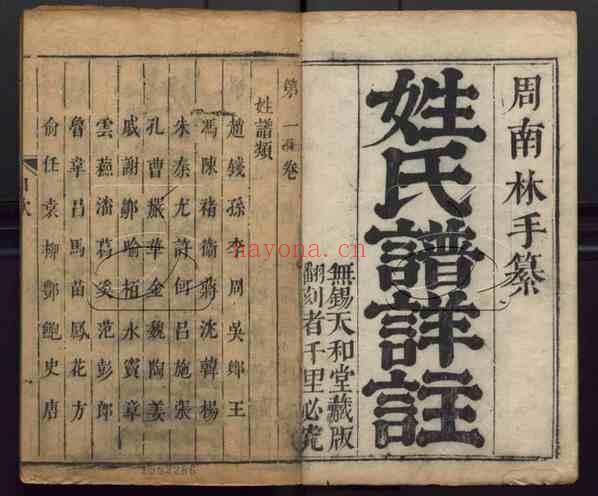 周南林手纂
姓氏譜詳註
無錫天和堂藏版
翻刻者千里必究
第一卷
姓譜類
趙錢孫李周吳鄭王
馮陳褚衞蔣沈韓楊
朱秦尤許何呂施張
孔曹嚴華金魏陶姜
戚謝鄒喻栢水竇章
雲蘇潘葛奚范彭郎
魯韋昌馬苗鳳花方
俞任袁柳酆鮑史唐
目次
nayona.cn